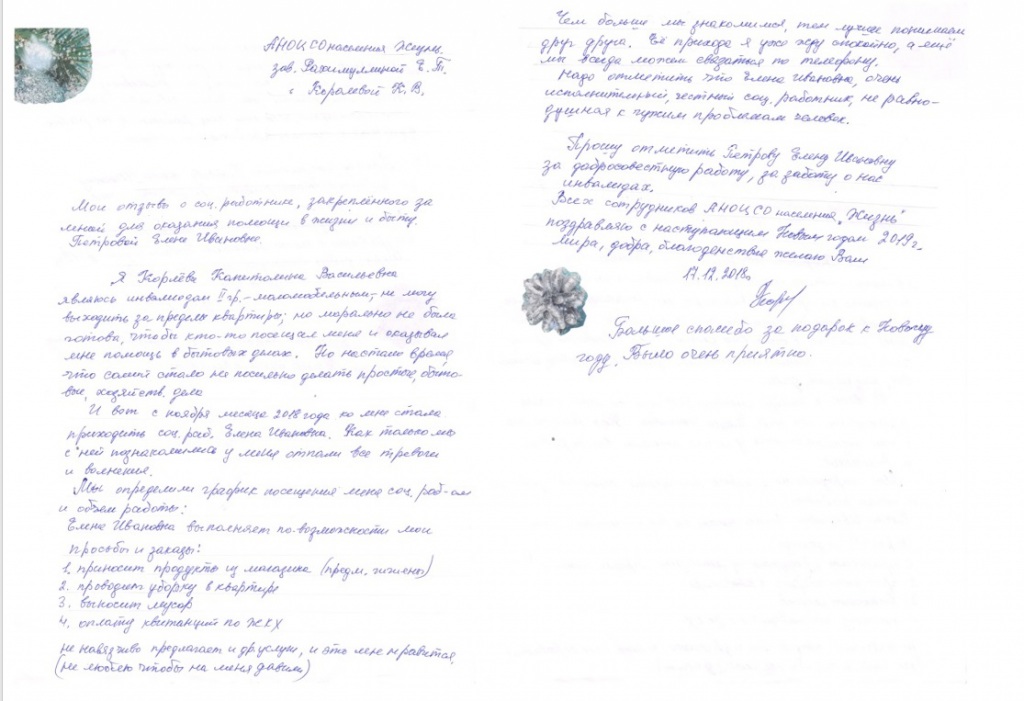 АНОЦСО населения Жизнь.
зав. Рахимуллиной Е. Т.
с Королевой К. В.
Мои отзывы о соц. работнике, закреплённого за
мной для оказания помощи в жизни и быту.
Петровой Елене Ивановне.
Я Корлёва Капитолина Васильевна
являюсь инвалидом II гр. - маломобельным, не могу
выходить за пределы квартиры, но морально не была
готова, чтобы кто-то посещал меня и оказывал
мне помощь в бытовых делах. Но настало время,
что самой стало не посильно делать простые, быто-
вые, хозяйств. дела
И вот с ноября месяца 2018 года ко мне стала
приходить соц. раб. Елена Ивановна. Как только мы
с ней познакомились у меня отпали все тревоги
и волнения.
Мы определили график посещения меня соц. раб-ом
и объём работы:
Елена Ивановна выполняет по-возможности мои
просьбы и заказы:
1. приносит продукты из магазина (предм. гигиены)
2. проводит уборку в квартире
3. выносит мусор
4. оплату квитанций по ЖКХ
не навязчиво предлагает и др. услуги, и это мне нравится.
(не люблю чтобы на меня давили)
Чем больше мы знакомимся, тем лучше понимаем
друг друга. Её прихода я уже жду спокойно, а ещё
мы всегда можем связаться по телефону.
Надо отметить что Елена Ивановна, очень
исполнительный, честный соц. работник, не равно-
душная к чужим проблемам человек.
Прошу отметить Петрову Елену Ивановну
за добросовестную работу, за заботу о нас
инвалидах.
Всех сотрудников АНОЦСО населения "Жизнь"
поздравляю с наступающим Новым годом 2019г.
Мира, добра, благоденствия желаю Вам
17.12.2018г.
Большое спасибо за подарок к Новому
году. Было очень приятно.